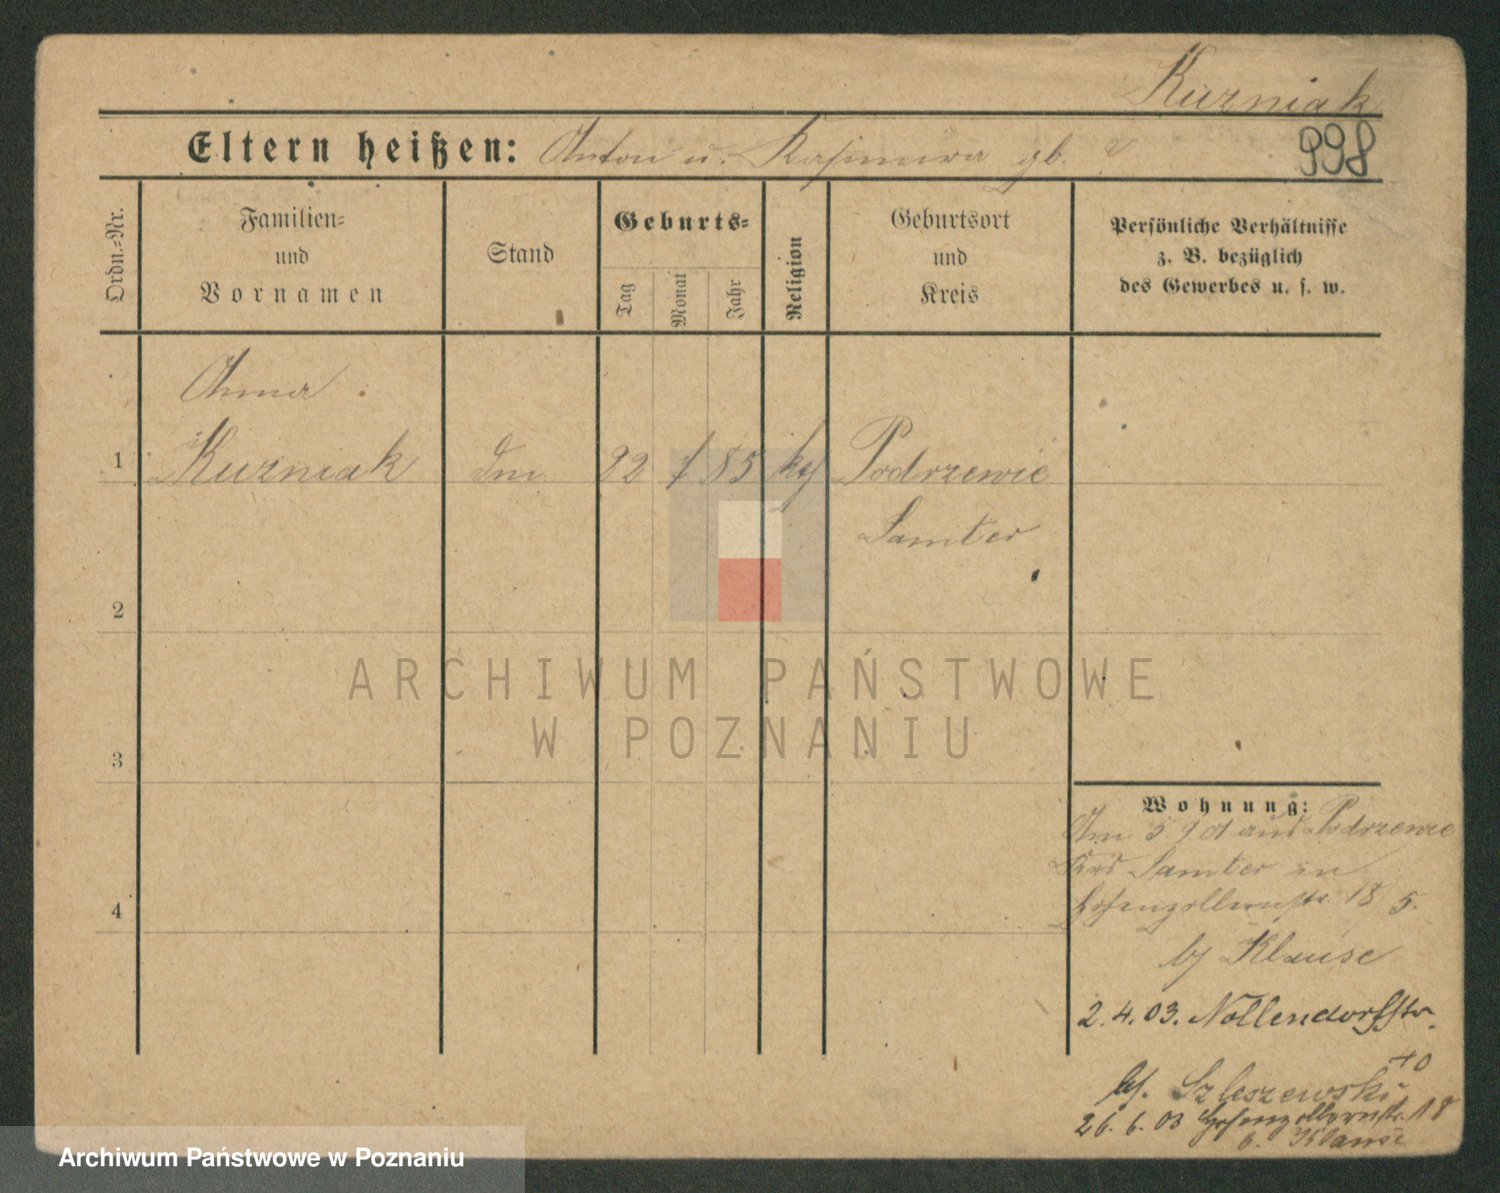 Kuzniak
Eltern heißen: Anton u. Kasimira gb. ?
998
Ordn.-Nr.
Familien-
und
Vornamen
Stand
Geburts-
Tag
Monat
Jahr
Religion
Geburtsort
und
Kreis
Persönliche Verhältnisse
z. B. bezüglich
des Gewerbes u. s. w.
Anna
1 Kuzniak 22 1 85 Podrzewie
Samter
2
3
4
ARCHIWUM PAŃSTWOWE
W POZNANIU
Wohnung:
Am 5 aus Podrzewie
Krs Samter in
Hohenzollernstr. 18 5.
by Klause
2.4.03. Nollendorfstr.
40
by. Szleszewski
26.6.03 Hohenzollernstr. 18
b. Klause
Archiwum Państwowe w Poznaniu